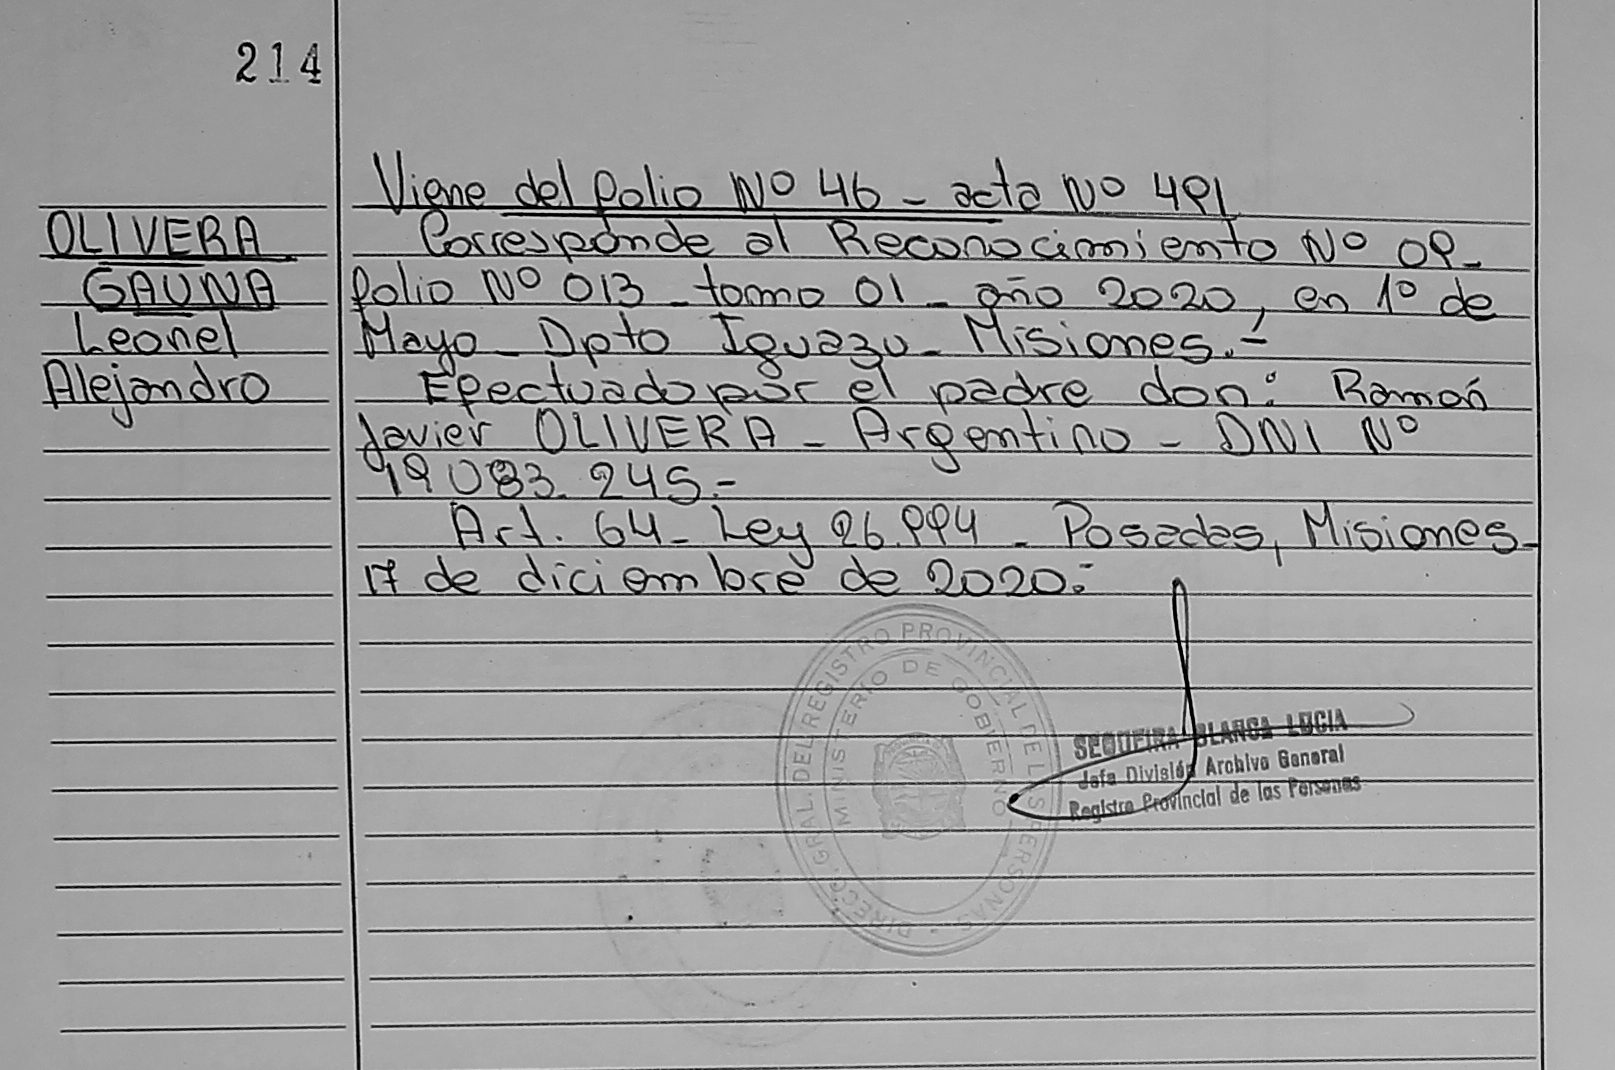 214
Viene del folio Nº 46 - acta Nº 491
OLIVERA
GAUNA
Leonel
Alejandro
Corresponde al Reconocimiento Nº 09-
folio Nº 013 - tomo 01 - año 2020, en 1º de
Mayo - Dpto Iguazu - Misiones.-
Efectuado por el padre don: Ramón
Javier OLIVERA - Argentino - DNI Nº
19.083.245.-
Art. 64 - Ley 26.994 - Posadas, Misiones-
17 de diciembre de 2020.-
DIRECC. GRAL. DEL REGISTRO PROVINCIAL DE LAS PERSONAS -
MINISTERIO DE GOBIERNO
SEQUEIRA BLANCA LUCIA
Jefa División Archivo General
Registro Provincial de las Personas